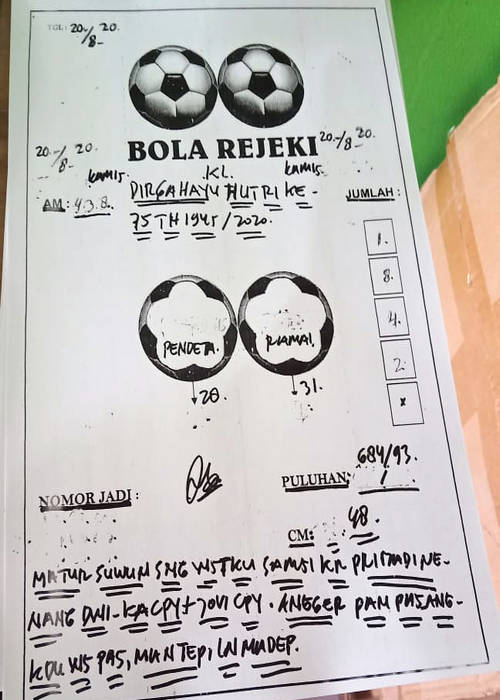 TGL: 20-/8- 20.
BOLA REJEKI
20.-/8- 20.
20.-/8- 20.
KAMIS.
KL.
KAMIS.
AM: 4.3.8.
DIRGAHAYU HUTRI KE-
JUMLAH:
75 TH 1945/2020.
1.
8.
4.
2.
*
PENDETA.
RAMAI.
28.
31.
NOMOR JADI:
PULUHAN:
684/93.
1
CM:
48.
MATUR SUWUN SMG WSTKU SAMSI KR
NANG DWI-KACPY+JOVI CPY.
KDU WS PAS, MANTEP, LN MADEP.